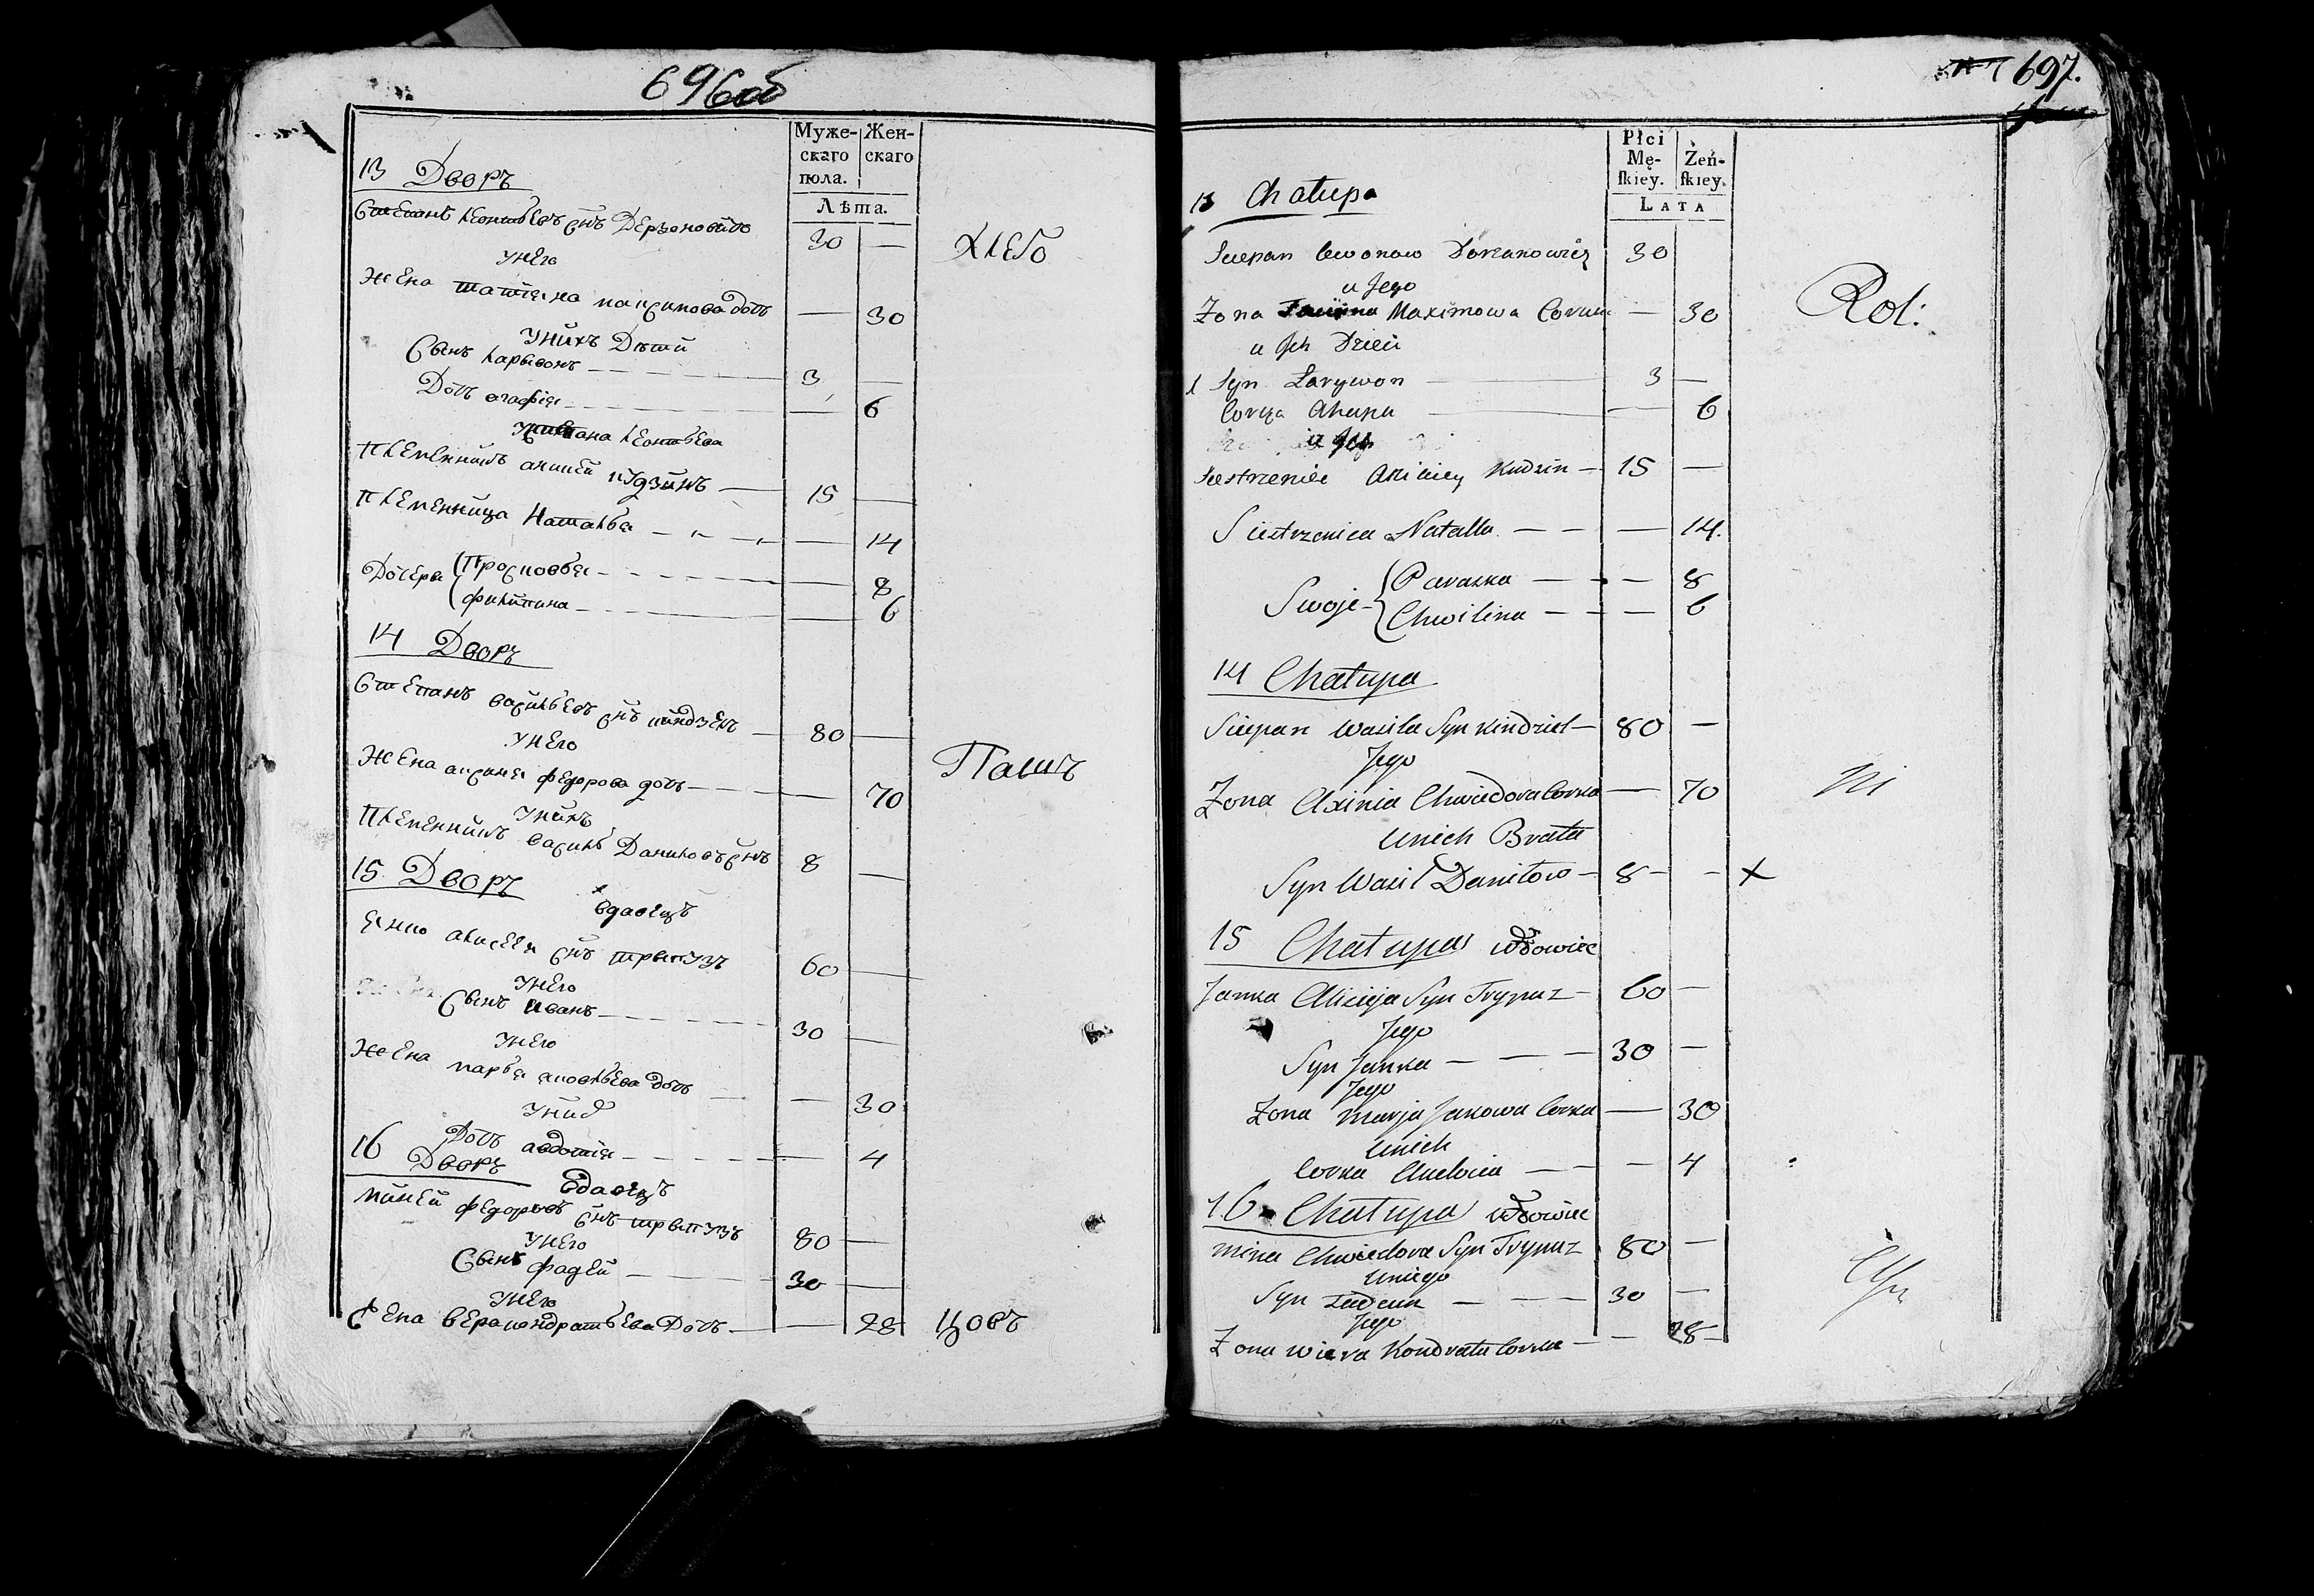 696об
Муже- Жен-
скаго скаго
пола.
Лѣта.
13 Дворъ
Степанъ Леонтьевъ снъ Дерзановичъ 30 —
хлебо
у него
жена татіяна максимова дочь — 30
у нихъ дети
Сынъ ларывонъ 3 —
Дочь агафія — 6
у степана леонтьева
племенникъ аникей кудзинъ — 15 —
племенница Наталья — 14
Дочеры Просковья — 8
филипина — 6
14 Дворъ
Степанъ васильевъ снъ киндзель — 80 —
у него
Пашъ
жена аксиня федорова дочь — 70
у нихъ
племенникъ василь Даниловъ снъ 8 —
15 Дворъ
вдавецъ
янко алисея снъ трыпузъ 60 —
у него
Сынъ иванъ 30 —
у него
жена марья яковльева дочь — 30
у них
Дочь авдотія — 4
16 Дворъ
вдавецъ
миней федоровъ снъ трыпузъ 80 —
у него
Сынъ фадей 30 —
у него
жена вера кондратьева Дочь — 28
цовъ
697.
Płci
Mę- Żeń-
ſkiey. ſkiey.
LATA
13 Chałupa
Sciepan Lewonow Dorzanowicz 30
u Jego
Rol:
Zona Maximowa Corka — 30
u Jch Dzieci
1 Syn Łarywon 3 —
Corka Ahapa — 6
Siestrzeniec Akiniey Kudzin — 15 —
Siestrzenica Natalla — 14.
Swoje Paraska — 8
Chwilina — 6
14 Chałupa
Sciepan Wasila Syn Kindziel — 80 —
Jego
Zona Axinia Chwiedora Corka — 70
unich Brata
Syn Wasil Daniłow — 8 — — X
15 Chałupa wdowiec
Janka Alisieja Syn Trypuz — 60 —
Jego
Syn Janka — 30 —
Jego
Zona Marja Jakowa Corka — 30
unich
Corka Audocia — 4
16 Chałupa wdowiec
Mina Chwiedora Syn Trypuz 80 —
uniego
Syn — 30 —
Jego
Zona Wiera Kondrata Corka — 28